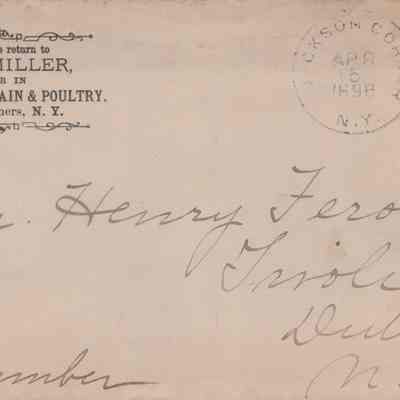 return to
MILLER,
IN
AIN & POULTRY.
ners, N. Y.
CKSON COR
APR
1898
N.Y.
Henry Fero
Tivoli
Du
N.
mber